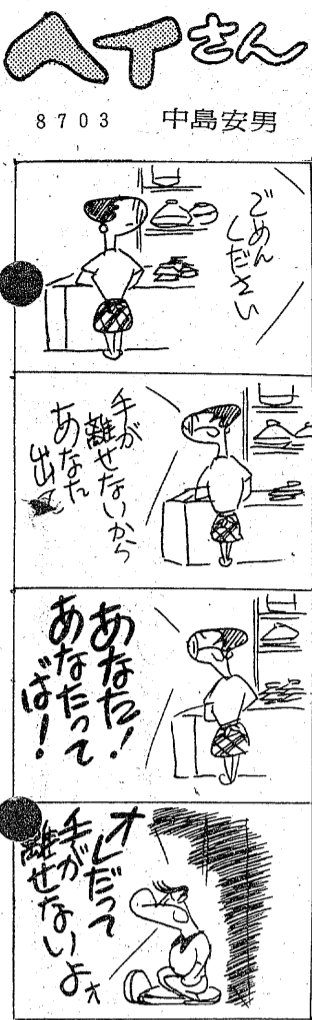 ヘイさん
8703 中島安男
ごめん
ください
手が
離せないから
あなた
出
あなた!
あなたって
ば!
オレだって
手が
離せないよォ